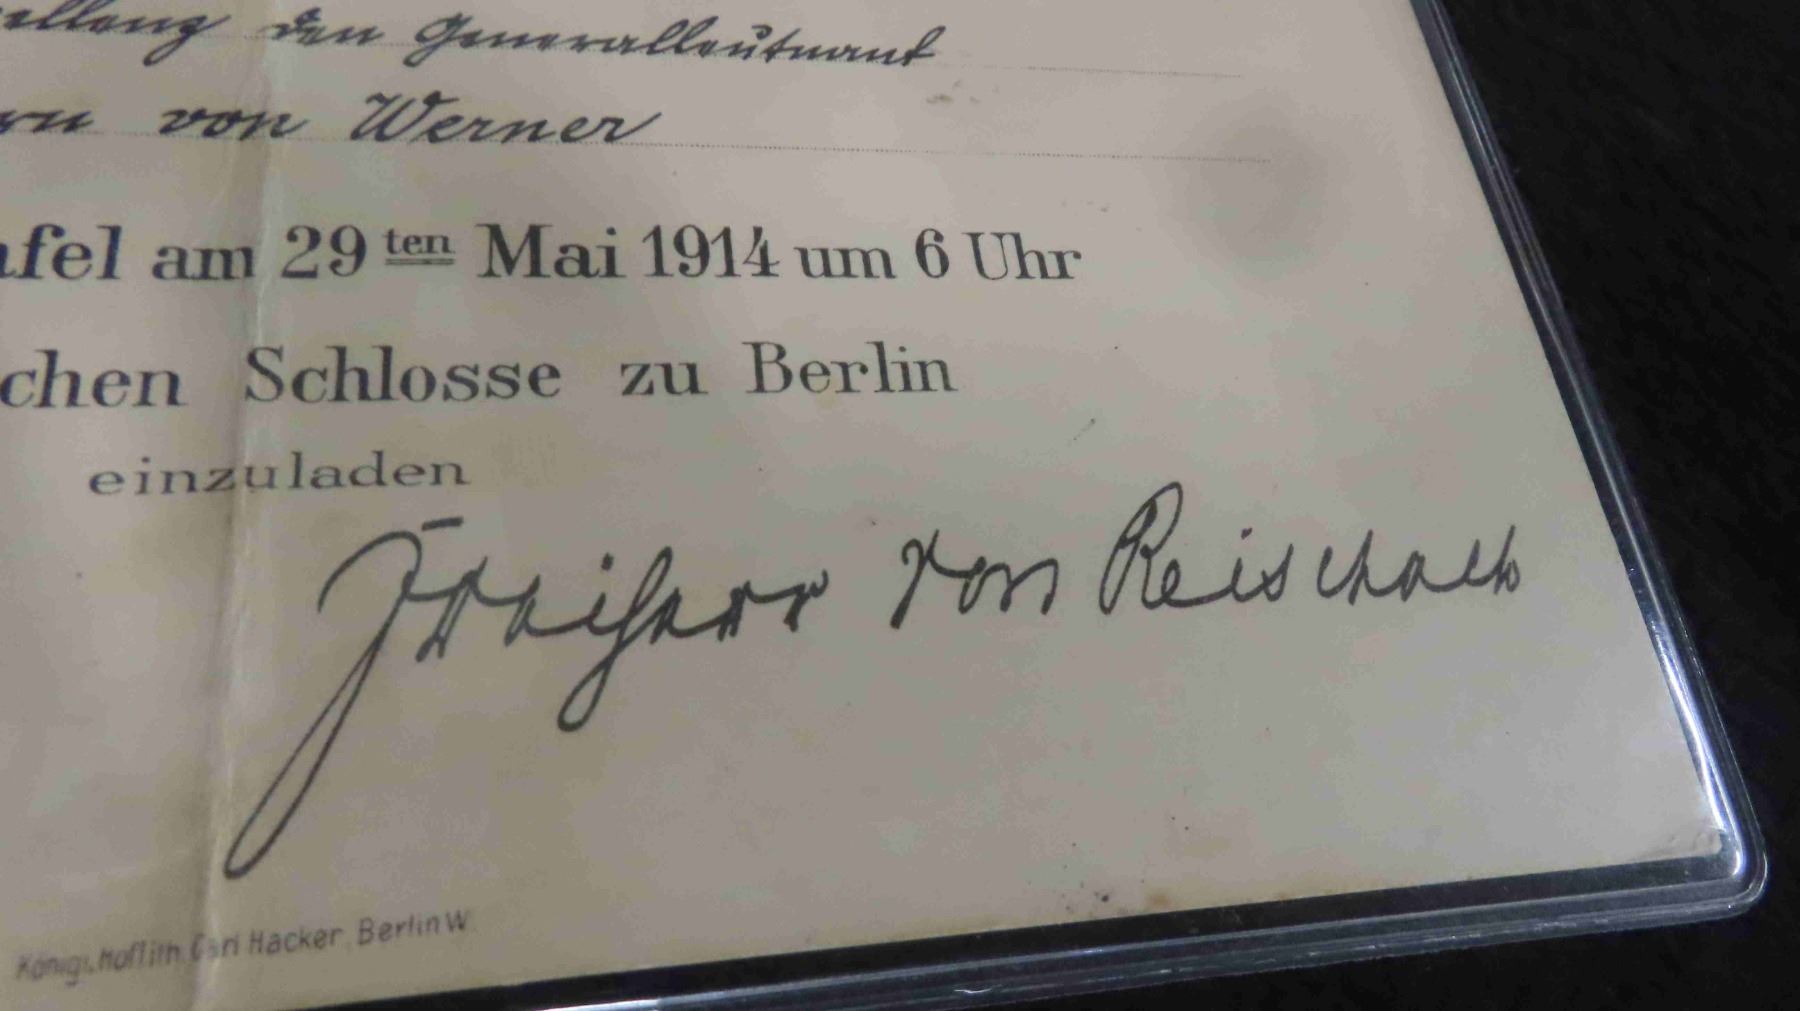 ellenz den Generalleutnant
rn von Werner
afel am 29ten Mai 1914 um 6 Uhr
chen Schlosse zu Berlin
einzuladen
Freiherr von Reischach
Königl. Hoflith. Carl Hacker, Berlin W.